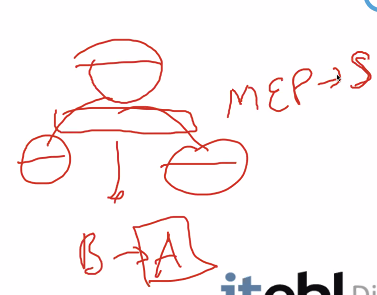 MEP → S
B → A
itebl Di